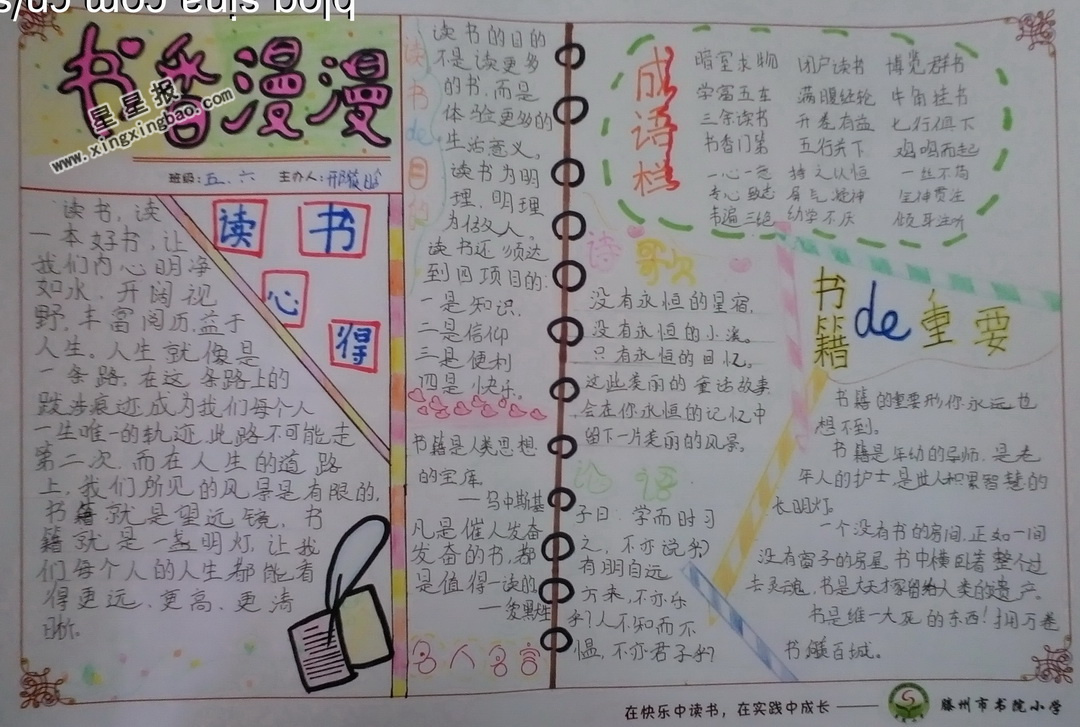 书香漫漫
星星报
www.xingxingbao.com
班级:五、六 主办人:
读书心得
读书,读
一本好书,让
我们内心明净
如水,开阔视
野,丰富阅历,益于
人生。人生就像是
一条路,在这条路上的
跋涉痕迹成为我们每个人
一生唯一的轨迹,此路不可能走
第二次,而在人生的道路
上,我们所见的风景是有限的,
书籍就是望远镜,书
籍就是一盏明灯,让我
们每个人的人生都能看
得更远、更高、更清
晰。
读书de目的
读书的目的
不是读更多
的书,而是
体验更多的
生活意义。
读书为明
理,明理
为做人。
读书还须达
到四项目的:
一是知识,
二是信仰
三是便利
四是快乐。
书籍是人类思想
的宝库
——乌申斯基
凡是催人发奋
发奋的书,都
是值得一读的。
名人名言
成语栏
闭户读书 博览群书
学富五车 满腹经轮 牛角挂书
三余读书 开卷有益 七行俱下
书香门第 五行并下 鸡鸣而起
一心一意 持之以恒 一丝不苟
专心致志 屏气凝神
韦编三绝
诗歌
没有永恒的星宿,
没有永恒的小溪。
只有永恒的回忆。
这些美丽的童话故事,
会在你永恒的记忆中
留下一片美丽的风景。
论语
子曰:学而时习
之,不亦说乎
有朋自远
方来,不亦乐
乎!人不知而不
愠,不亦君子乎
书籍de重要
书籍的重要形你永远也
想不到。
书籍是年幼的导师,是老
年人的护士,是世人积累智慧的
长明灯。
一个没有书的房间,正如一间
没有窗子的房屋
去灵魂,书是天才家留给人类的遗产。
书是维一大死的东西!拥万卷
书 百城。
在快乐中读书,在实践中成长——
滕州市书院小学